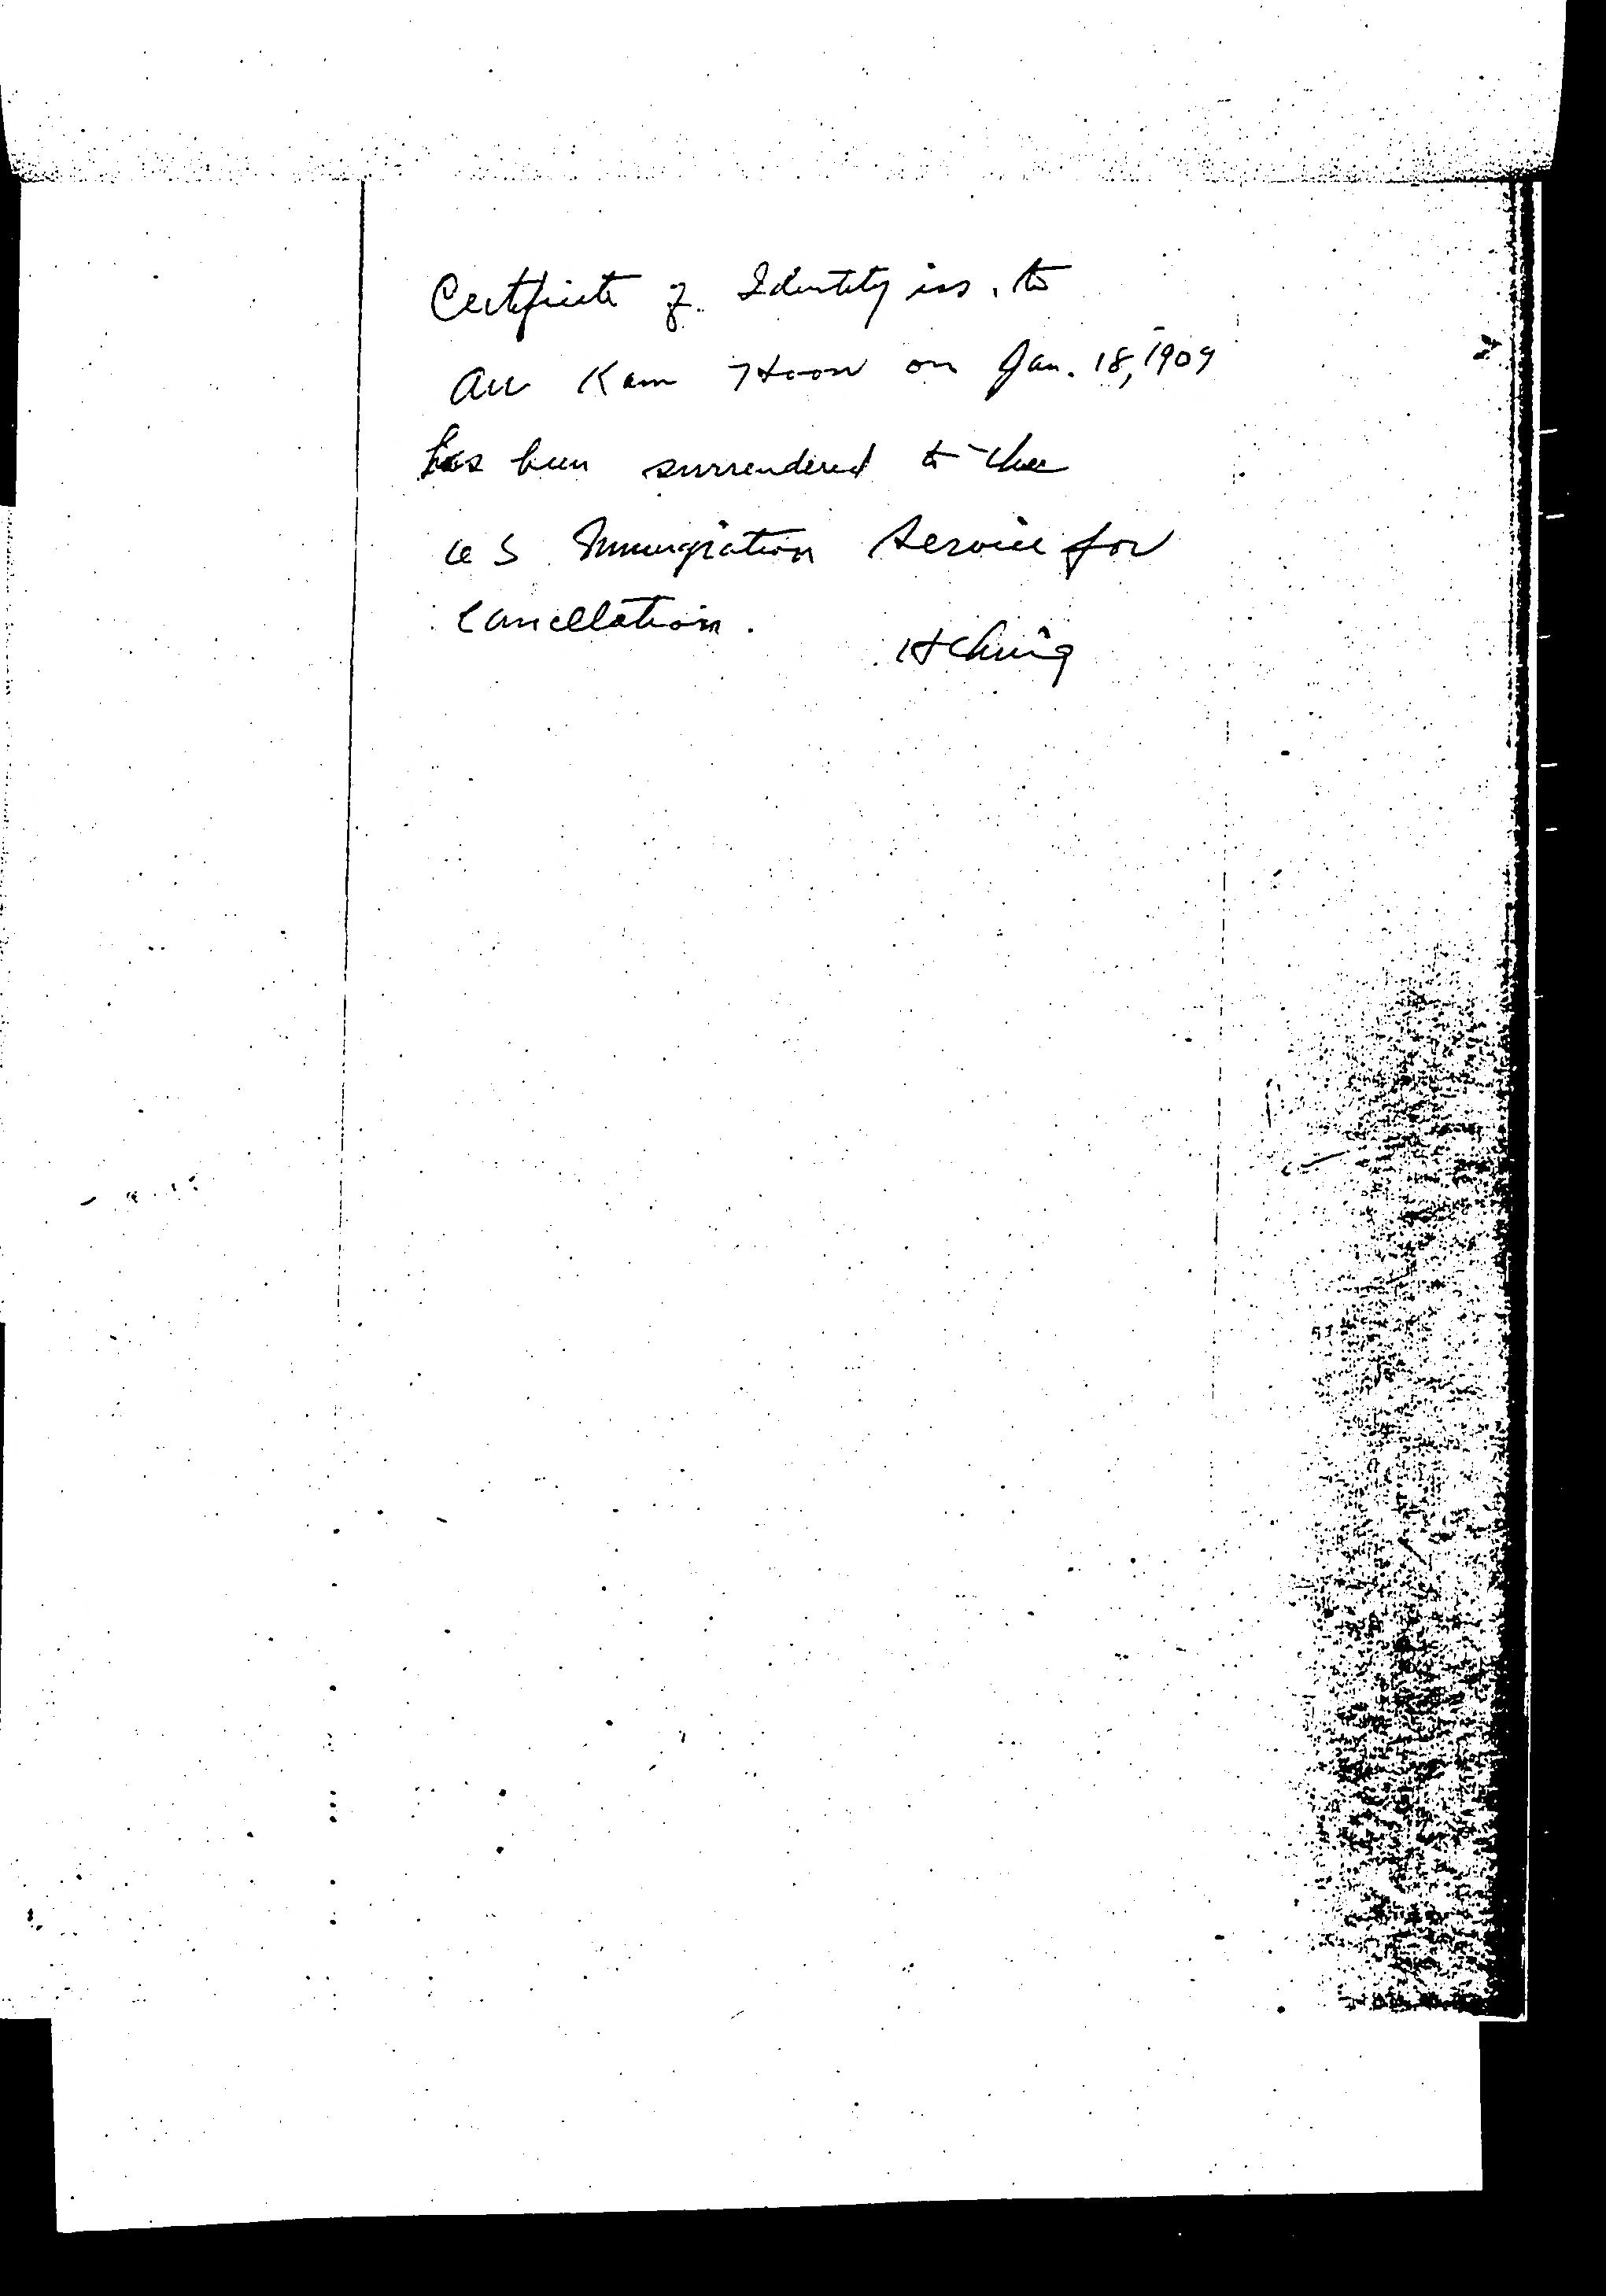 Certificate of Identity iss. to
Au Kam Hoon on Jan. 18, 1909
has been surrendered to the
US Immigration Service for
Cancellation.
HChing